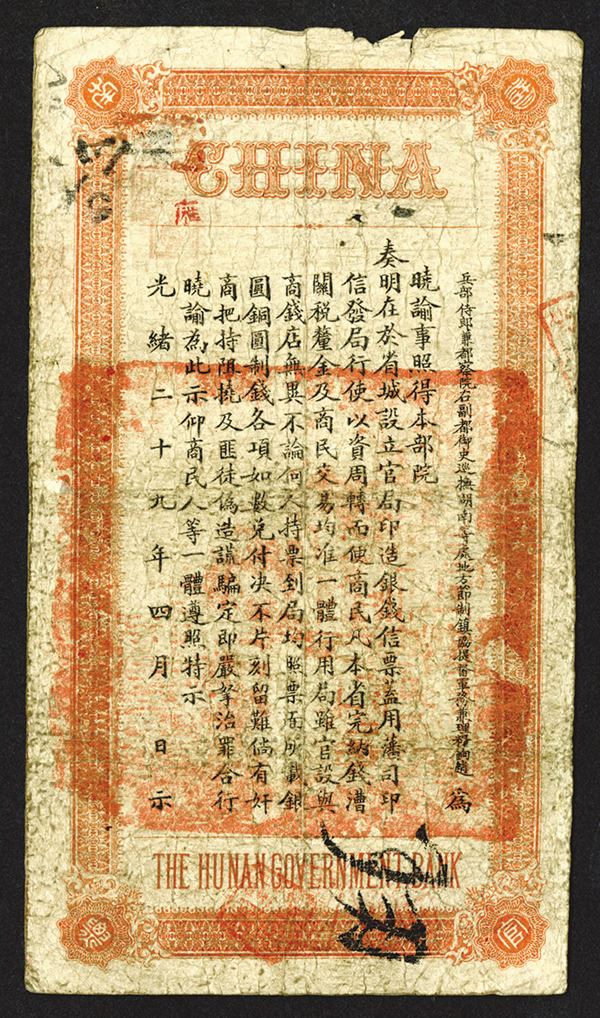 CHINA
兵部侍郎兼都察院右副都御史巡撫湖南等處地方節制鎮協提督軍務兼理糧餉趙 為
曉諭事照得本部院
奏明在於省城設立官局印造銀錢信票蓋用藩司印
信發局行使以資周轉而便商民凡本省完納錢漕
關税釐金及商民交易均准一體行用局雖官設與
商錢店無異不論何人持票到局均照票面所載銀
圓銅圓制錢各項如數兌付决不片刻留難倘有奸
商把持阻撓及匪徒偽造謊騙定即嚴拏治罪合行
曉諭為此示仰商民人等一體遵照特示
光緒二十九年四月 日示
THE HUNAN GOVERNMENT BANK
官